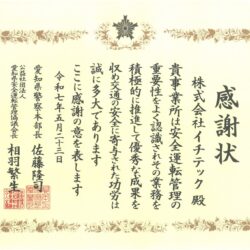 感謝状
株式会社イチテック 殿
貴事業所は安全運転管理の
重要性をよく認識されその業務を
積極的に推進して優秀な成果を
収め交通の安全に寄与された功労は
誠に多大であります
ここに感謝の意を表します
令和七年五月二十三日
愛知県警察本部長 佐藤隆司
公益社団法人
愛知県安全運転管理協議会長 相羽繁生